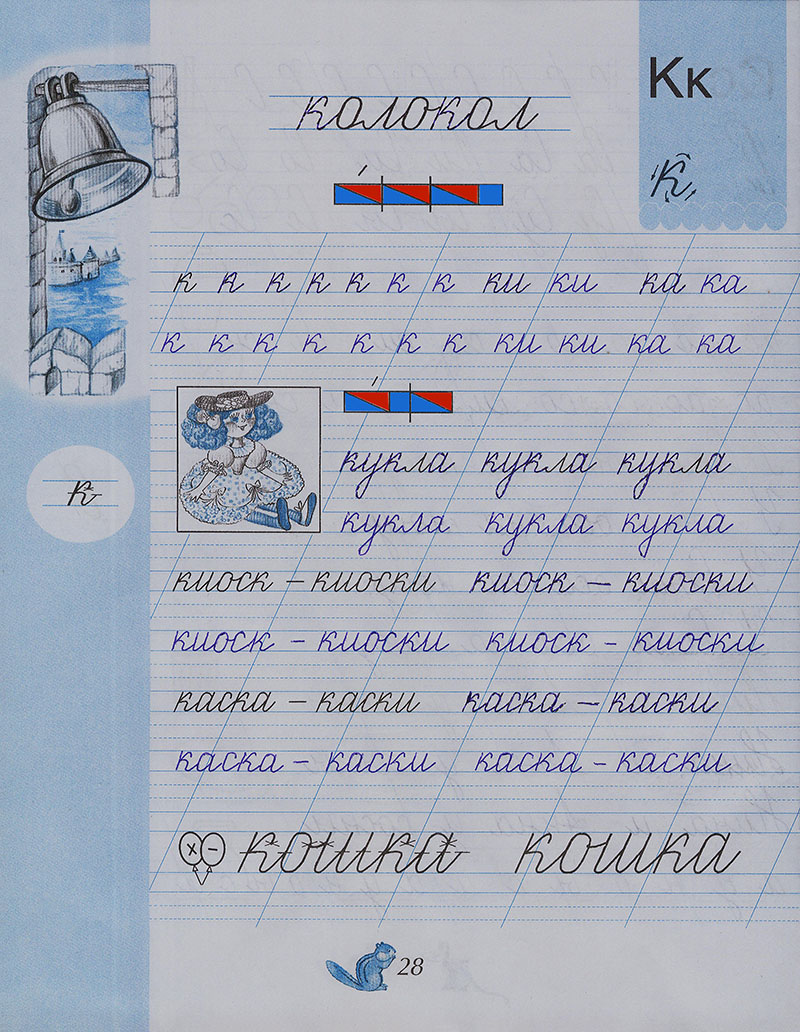 Кк
колокол
К
к к к к к к к ки ки ка ка
к к к к к к к ки ки ка ка
кукла кукла кукла
кукла кукла кукла
к
киоск – киоски киоск – киоски
киоск – киоски киоск – киоски
каска – каски каска – каски
каска – каски каска – каски
х – кошка кошка
28